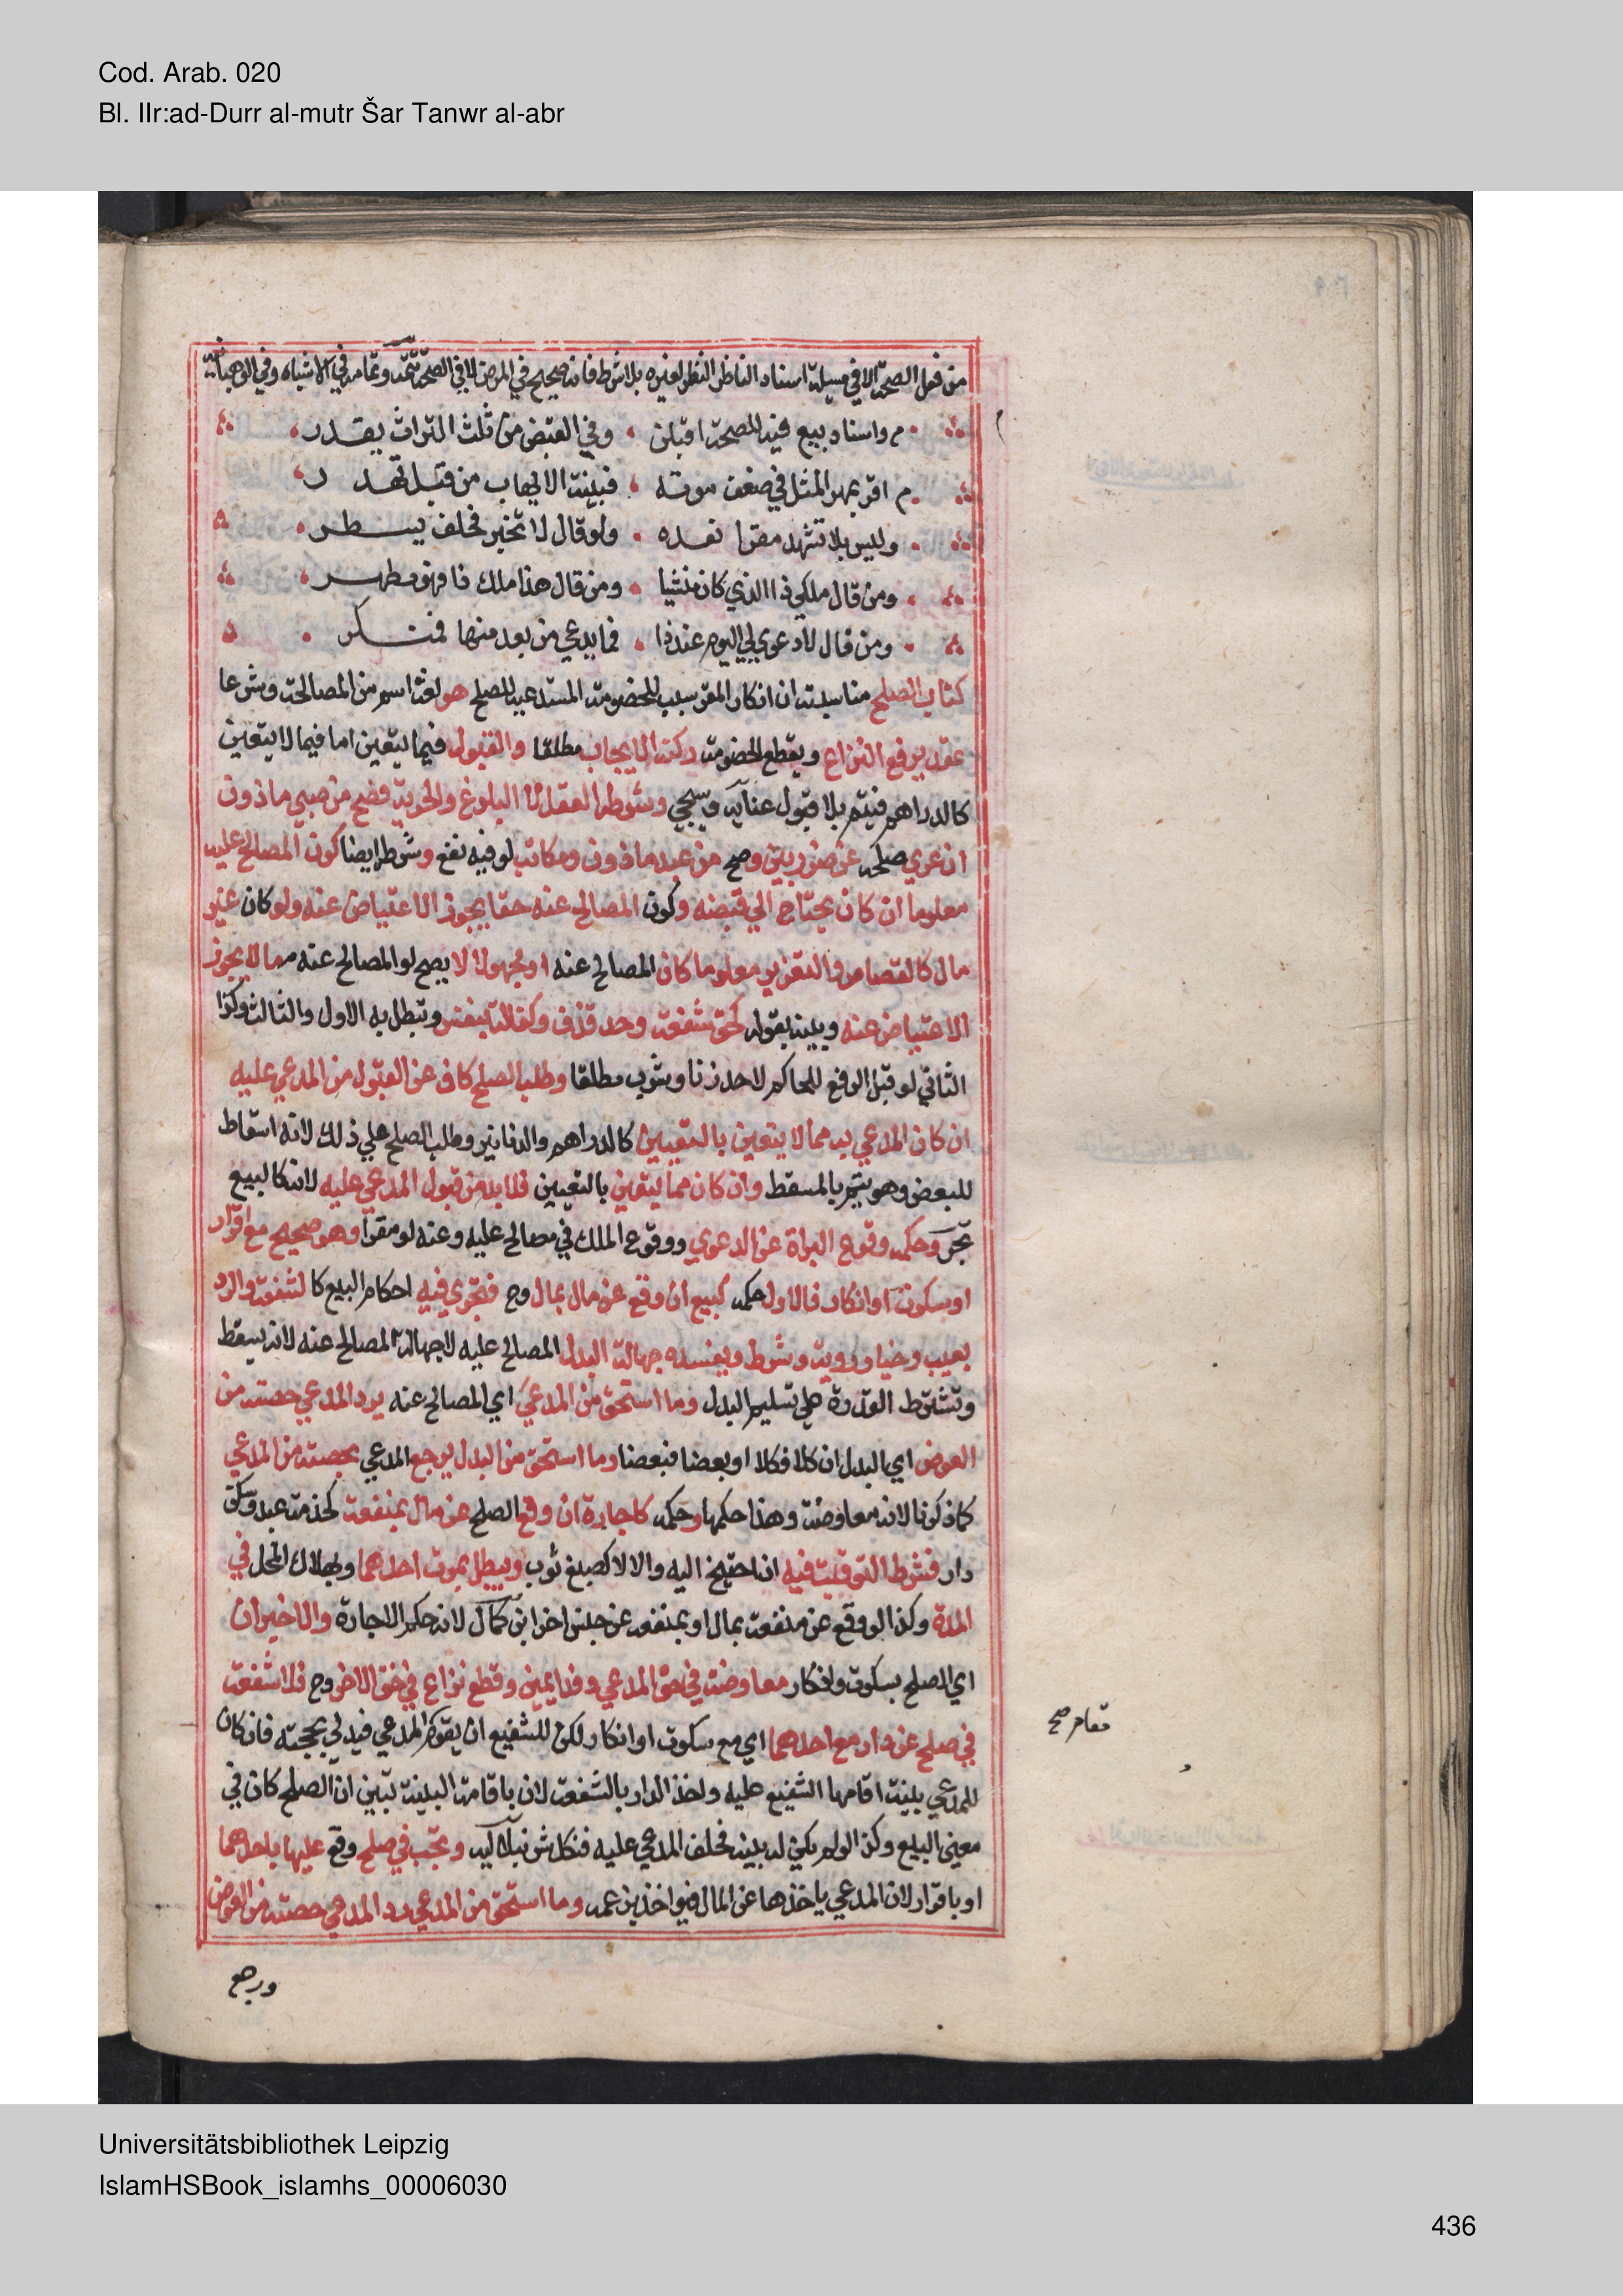 Cod. Arab. 020
Bl. IIr:ad-Durr al-mutr Šar Tanwr al-abr
من فعل الصحة الا في مسيلة اسناد الناظر النظر لغيره بلا شرط فانه صحيح في المرض لا في الصحة تتمة وتمامه في الاشباه وفي الوهبانية
م واسناد بيع فيه للصحة اقبلن وفي القبض من ثلث التراث يقدر
م اقر بمهر المثل في ضعف موته فبينة الايهاب من قبل تهدر
وليس بلا تشهد مقرا نعده ولو قال لا تخبر فخلف يسطر
ومن قال ملكي ذا الذي كان منشيا ومن قال هذا ملك ذا فهو مظهر
ومن قال لا دعوى لي اليوم عند ذا فما يدعي من بعد منها فمنكر
كتاب الصلح مناسبته ان انكار المقر سبب للخصومة المستدعية للصلح هو لغة اسم من المصالحة وشرعا
عقد يرفع النزاع ويقطع الخصومة ركنه الايجاب مطلقا والقبول فيما يتعين اما فيما لا يتعين
كالدراهم فيتم بلا قبول عناية وسيجي وشرطه العقل لا البلوغ والحرية فصح من صبي ماذون
ان عري صلحه عن ضرر بين وصح من عبد ماذون ومكاتب لو فيه نفع وشرطه ايضا كون المصالح عليه
معلوما ان كان يحتاج الي قبضه وكون المصالح عنه حقا يجوز الاعتياض عنه ولو كان غير
مال كالقصاص والتعزير معلوما كان المصالح عنه او مجهولا لا يصح لو المصالح عنه مما لا يجوز
الاعتياض عنه وبينه بقوله كحق شفعة وحد قذف وكفالة بنفس ويبطل به الاول والثالث وكذا
الثاني لو قبل الرفع للحاكم لا حد زنا وشرب مطلقا وطلب الصلح كاف عن القبول من المدعي عليه
ان كان المدعي به مما لا يتعين بالتعيين كالدراهم والدنانير وطلب الصلح علي ذلك لانه اسقاط
للبعض وهو يتم بالمسقط وان كان مما يتعين بالتعيين فلا بد من قبول المدعي عليه لانه كالبيع
بحر وحكمه وقوع البراة عن الدعوي ووقوع الملك في مصالح عليه وعنه لو مقرا وهو صحيح مع اقرار
او سكوت او انكار فالاول حكمه كبيع ان وقع عن مال بمال وح فتجري فيه احكام البيع كالشفعة والرد
بعيب وخيار روية وشرط ويفسده جهالة البدل المصالح عليه لا جهالة المصالح عنه لانه يسقط
وتشترط القدرة علي تسليم البدل وما استحق من المدعي اي المصالح عنه يرد المدعي حصته من
العوض اي البدل ان كلا فكلا او بعضا فبعضا وما استحق من البدل يرجع المدعي بحصته من المدعي
كما ذكرنا لانه معاوضة وهذا حكمها وحكمه كاجارة ان وقع الصلح عن مال بمنفعة كخدمة عبد وسكني
دار فشرط التوقيت فيه ان احتيج اليه والا لا كصبغ ثوب ويبطل بموت احدهما وبهلاك المحل في
المدة وكذا لو وقع عن منفعة بمال او بمنفعة عن جنس اخر ابن كمال لانه حكم الاجارة والاخيران
اي الصلح بسكوت وانكار معاوضة في حق المدعي وفدا يمين وقطع نزاع في حق الاخر وح فلا شفعة
في صلح عن دار مع احدهما اي مع سكوت او انكار لكن للشفيع ان يقوم مقام المدعي فيدلي بحجته فان كان
مقام صح
للمدعي بينة اقامها الشفيع عليه واخذ الدار بالشفعة لان باقامة البينة تبين ان الصلح كان في
معني البيع وكذا لو لم يكن له بينة فحلف المدعي عليه فنكل شرنبلالية وتجب في صلح وقع عليها باحدهما
او باقرار لان المدعي ياخذها عن المال فيواخذ بزعمه وما استحق من المدعي رد المدعي حصته من العوض
ورجع
Universitätsbibliothek Leipzig
IslamHSBook_islamhs_00006030
436